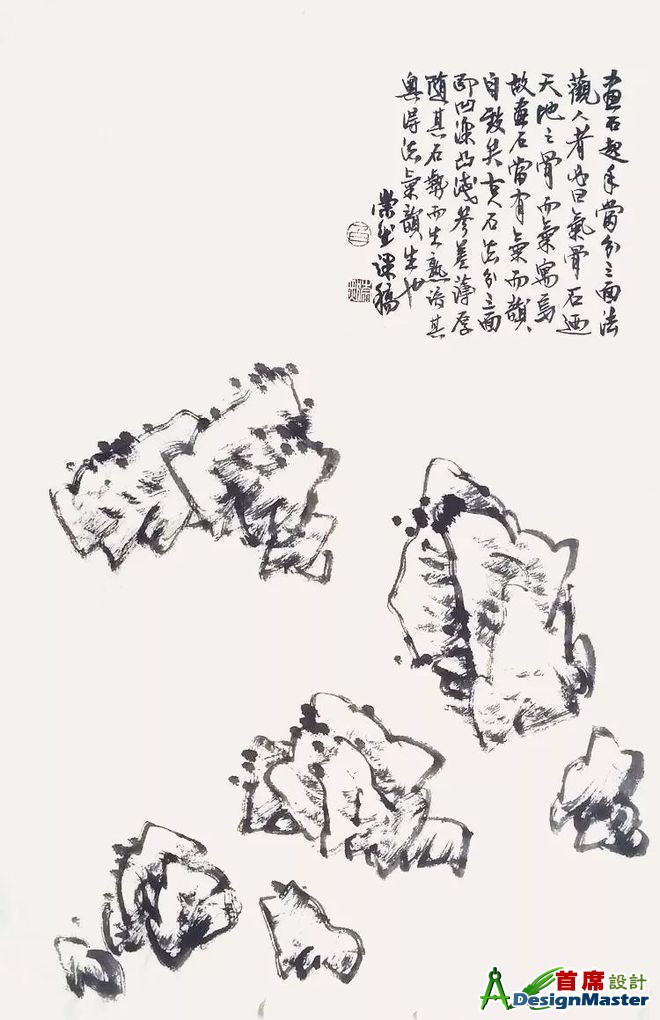 畫石起手當分三面法
觀人者必曰氣骨石迺
天地之骨而氣寓焉
故畫石當有氣而韻
自致矣古石法分三面
即凹深凸淺參差薄厚
隨其石勢而生熟諳其
奧得法氣韻生也
崇生課稿
首席設計
DesignMaster